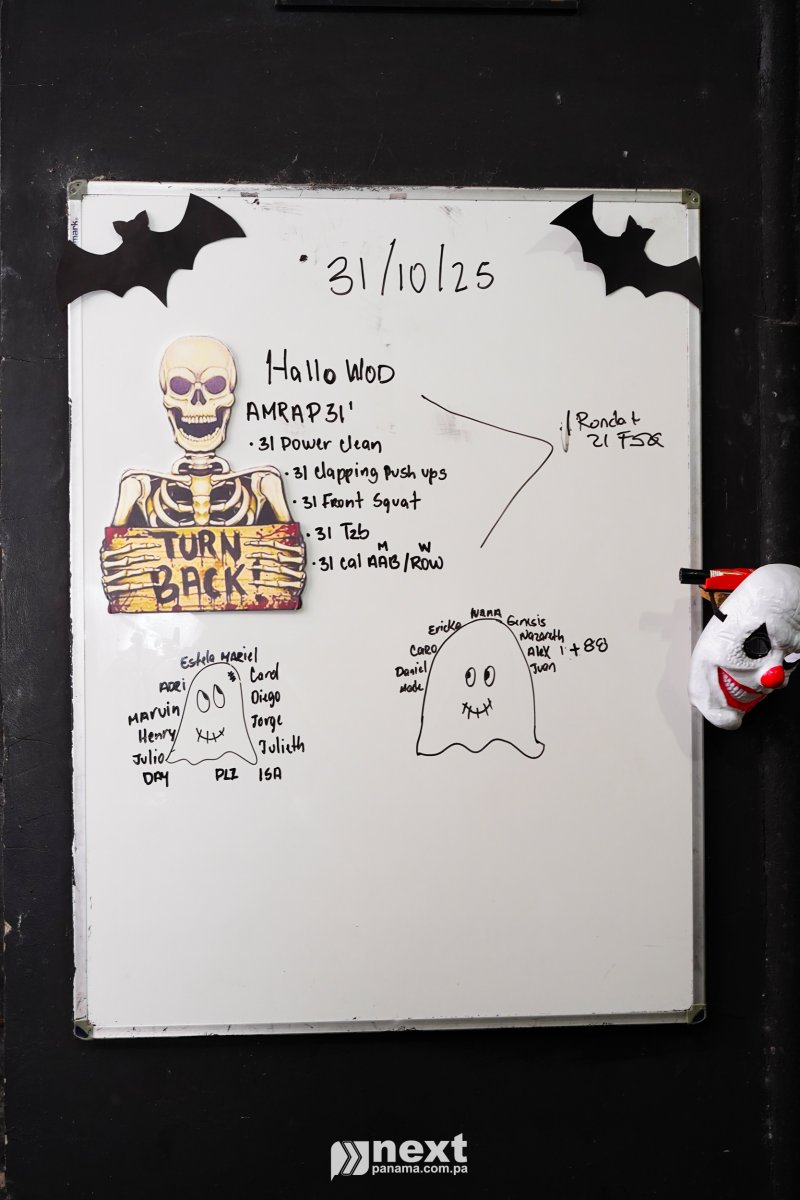 mark.
31/10/25
Hallo WOD
AMRAP 31'
· 31 Power clean
· 31 Clapping Push ups
· 31 Front Squat
· 31 T2b
M W
· 31 cal AAB/ROW
1 Ronda +
21 FSQ
TURN
BACK!
Estela Mariel
Adri
Carol
Marvin
Diego
Henry
Jorge
Julio
Julieth
DAY PLI ISA
Nana
Ericka
Genesis
Nazareth
Caro
Alex 1 + 88
Daniel
Juan
next
panama.com.pa